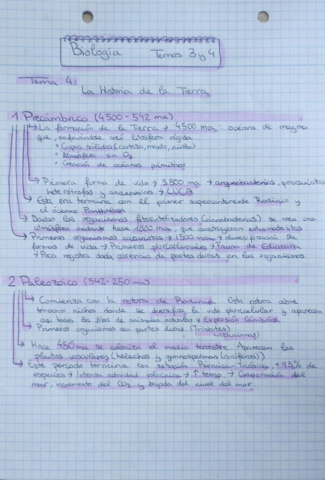 Biología Temas 3 y 4
Tema 4:
La Historia de la Tierra
1. Precámbrico (4500-542 ma)
La formación de la Tierra → 4500 ma, océano de magma
que, enfriándose, creó litosfera rígida
• Capas sólidas (corteza, manto, núcleo)
• Atmósfera sin O2
• Creación de océanos primitivos
Primera forma de vida → 3800 ma → arqueobacterias, procariotas
heterótrofas y anaerobias → LUCA
Esta era termina con el primer supercontinente Rodinia y
el océano
Dados los organismos fotosintetizadores (cianobacterias) se crea una
atmósfera oxidante hace 1800 ma, que
Primeros organismos eucariotas → 1500 ma →
formas de vida → Primeros pluricelulares → fauna de Ediacara
→ Poco registro dada carencia de partes duras en los organismos
2. Paleozoico (542-250 ma)
Comienza con la rotura de Rodinia. Esta rotura abre
nuevos nichos donde se diversifica la vida pluricelular y aparecen
casi todos los filos de animales actuales → Explosión Cámbrica
Primeros organismos con partes duras (Trilobites)
Hace 450 ma se coloniza el medio terrestre. Aparecen las
plantas vasculares (helechos y gimnospermas (coníferas))
Este periodo termina con extinción Pérmico-Triásico, + 95% de
especies → Intensa actividad volcánica → ↑ temp. → Evaporación del
mar, incremento del CO2 y bajada del nivel del mar.